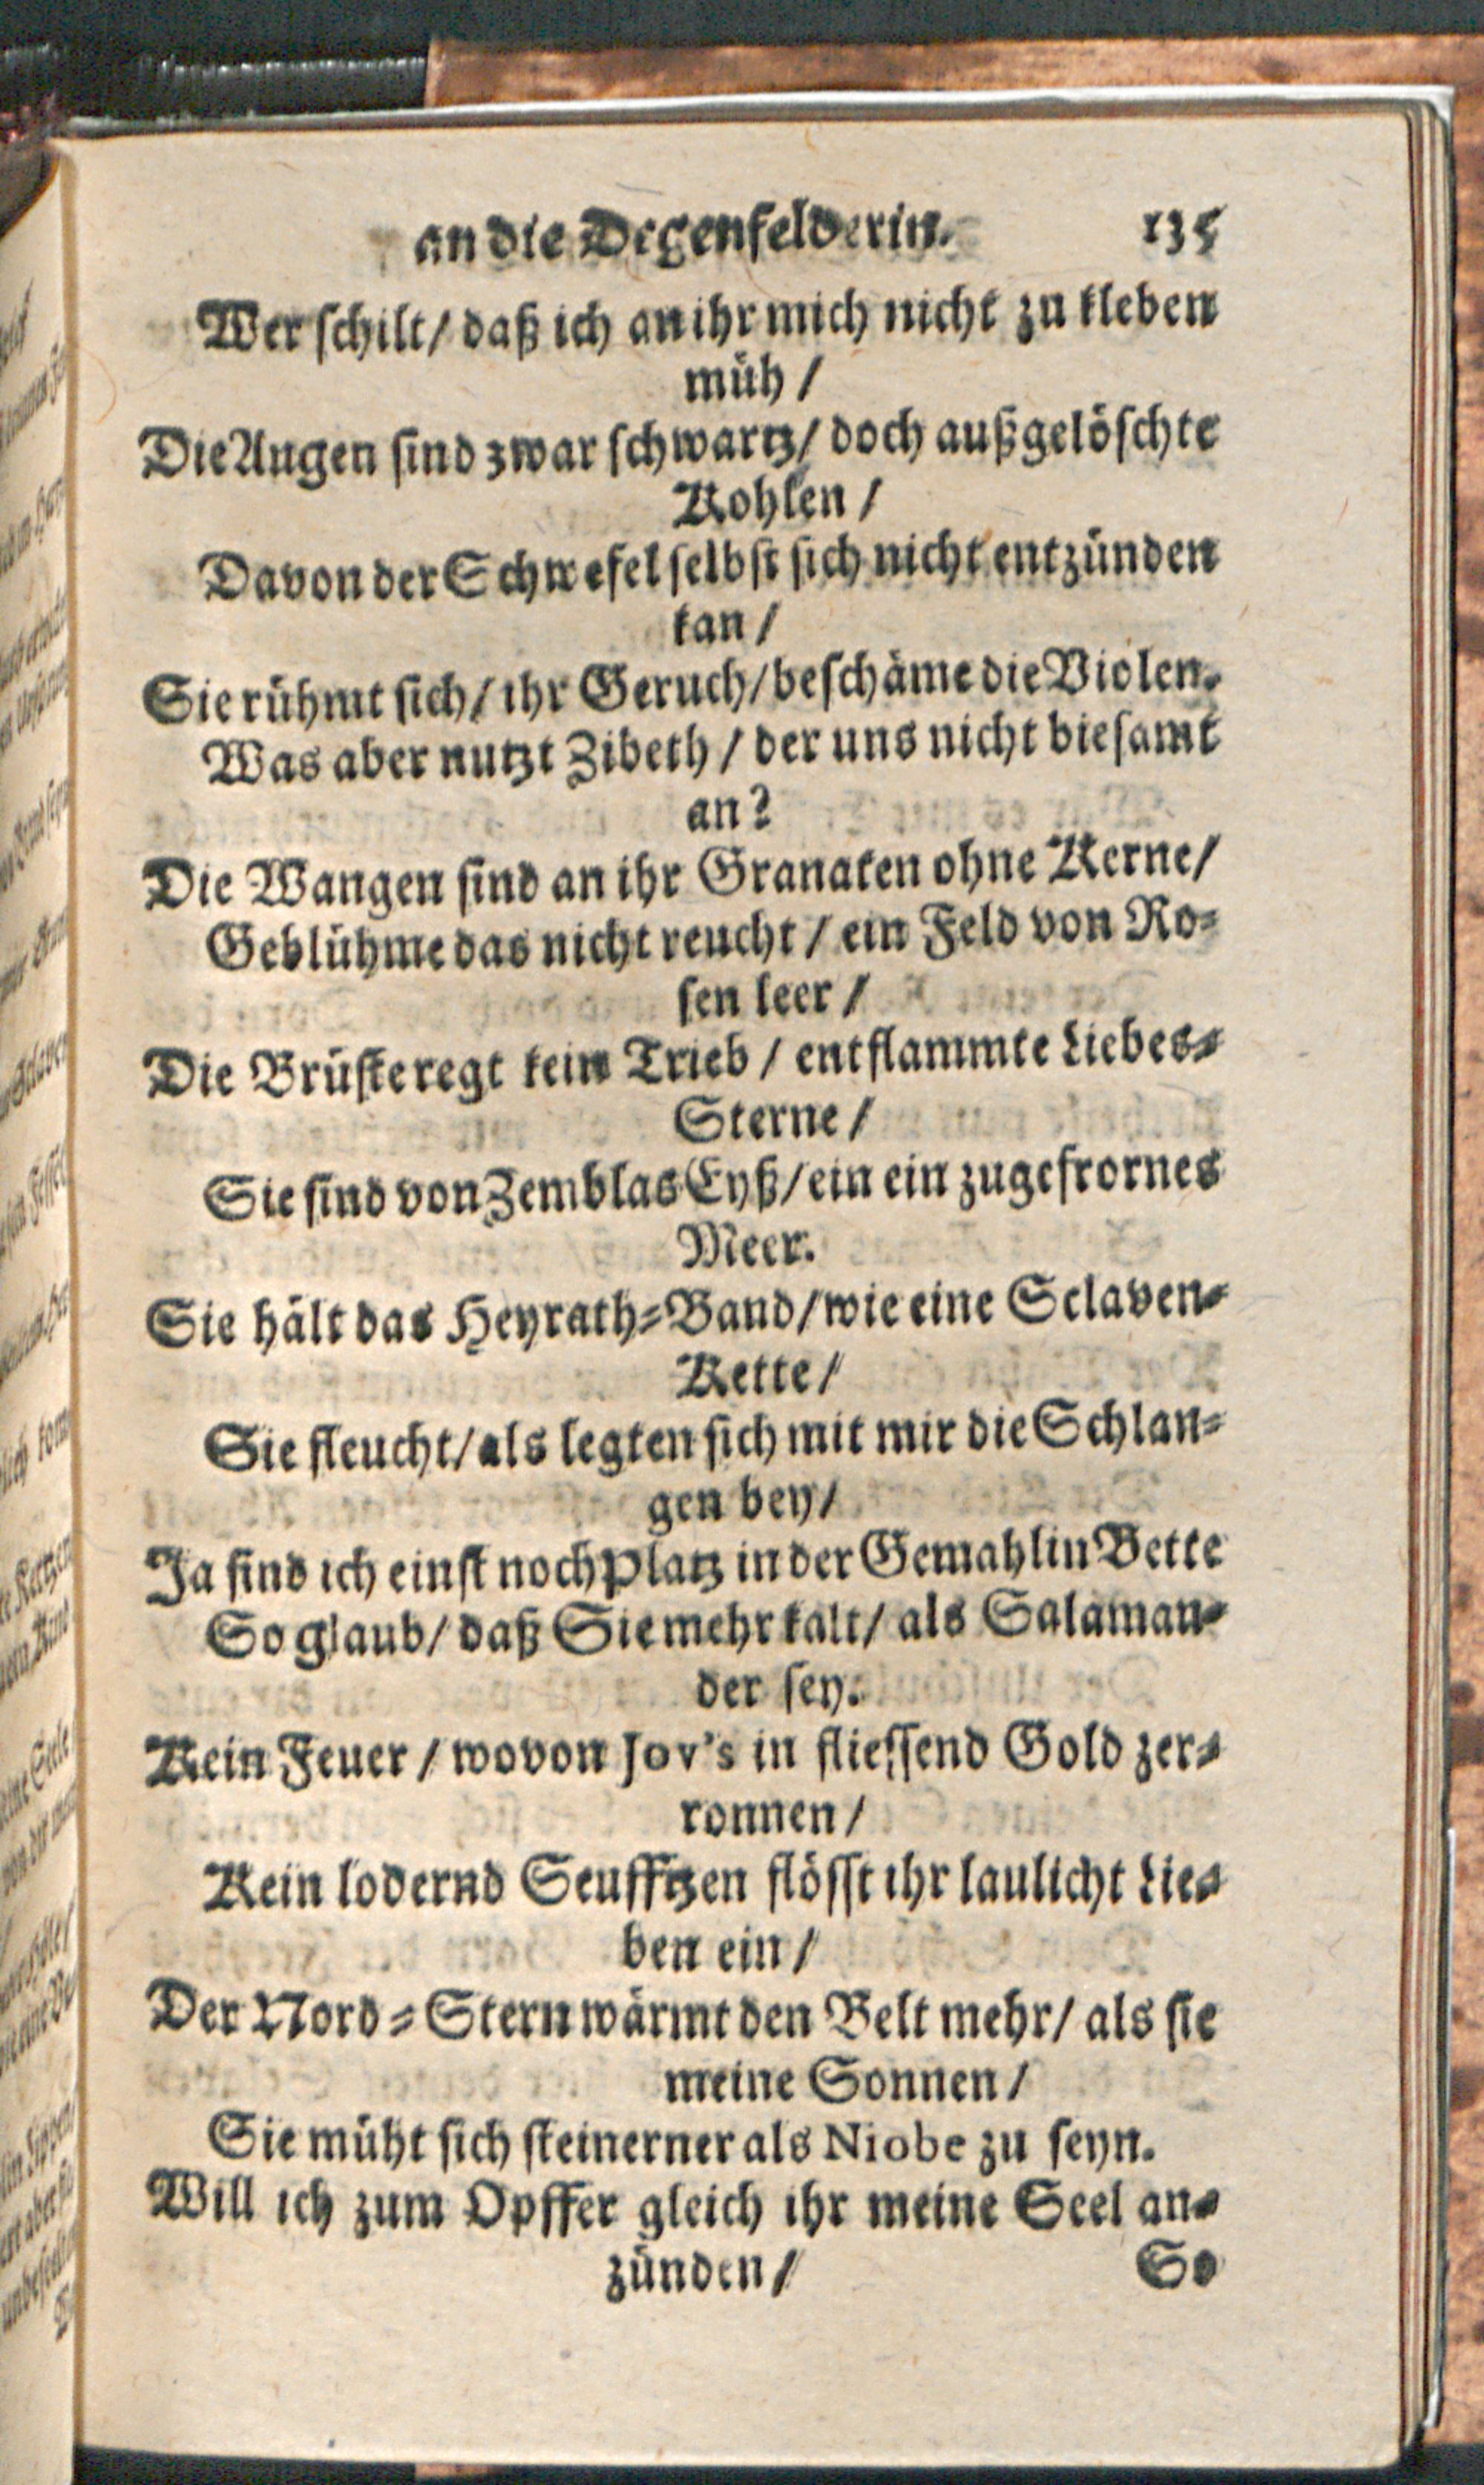 an die Degenfelderin. 135
Wer schilt/ daß ich an ihr mich nicht zu kleben
müh /
Die Augen sind zwar schwartz/ doch außgelöschte
Kohlen /
Davon der Schwefel selbst sich nicht entzünden
kan /
Sie rühmt sich/ ihr Geruch/ beschäme die Violen.
Was aber nutzt Zibeth / der uns nicht biesamt
an?
Die Wangen sind an ihr Granaten ohne Kerne/
Geblühme das nicht reucht / ein Feld von Ro-
sen leer /
Die Brüste regt kein Trieb / entflammte Liebes-
Sterne /
Sie sind von Zemblas Eyß/ ein ein zugefrornes
Meer.
Sie hält das Heyrath-Band/ wie eine Sclaven-
Kette/
Sie fleucht/ als legten sich mit mir die Schlan-
gen bey/
Ja find ich einst noch Platz in der Gemahlin Bette
So glaub/ daß Sie mehr kalt/ als Salaman-
der sey.
Kein Feuer / wovon Jov's in fliessend Gold zer-
ronnen /
Kein lodernd Seufftzen flösst ihr laulicht Lie-
ben ein /
Der Nord-Stern wärmt den Belt mehr/ als sie
meine Sonnen /
Sie müht sich steinerner als Niobe zu seyn.
Will ich zum Opffer gleich ihr meine Seel an-
zünden /
So